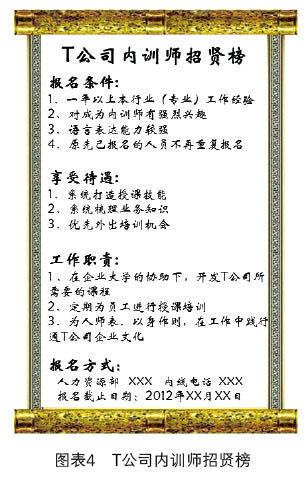 T公司内训师招贤榜
报名条件:
1、一年以上本行业（专业）工作经验
2、对成为内训师有强烈兴趣
3、语言表达能力较强
4、原先已报名的人员不再重复报名
享受待遇:
1、系统打造授课技能
2、系统梳理业务知识
3、优先外出培训机会
工作职责:
1、在企业大学的协助下，开发T公司所
需要的课程
2、定期为员工进行授课培训
3、为人师表、以身作则，在工作中践行
通T公司企业文化
报名方式:
人力资源部 XXX 内线电话 XXX
报名截止日期: 2012年XX月XX日
图表4 T公司内训师招贤榜